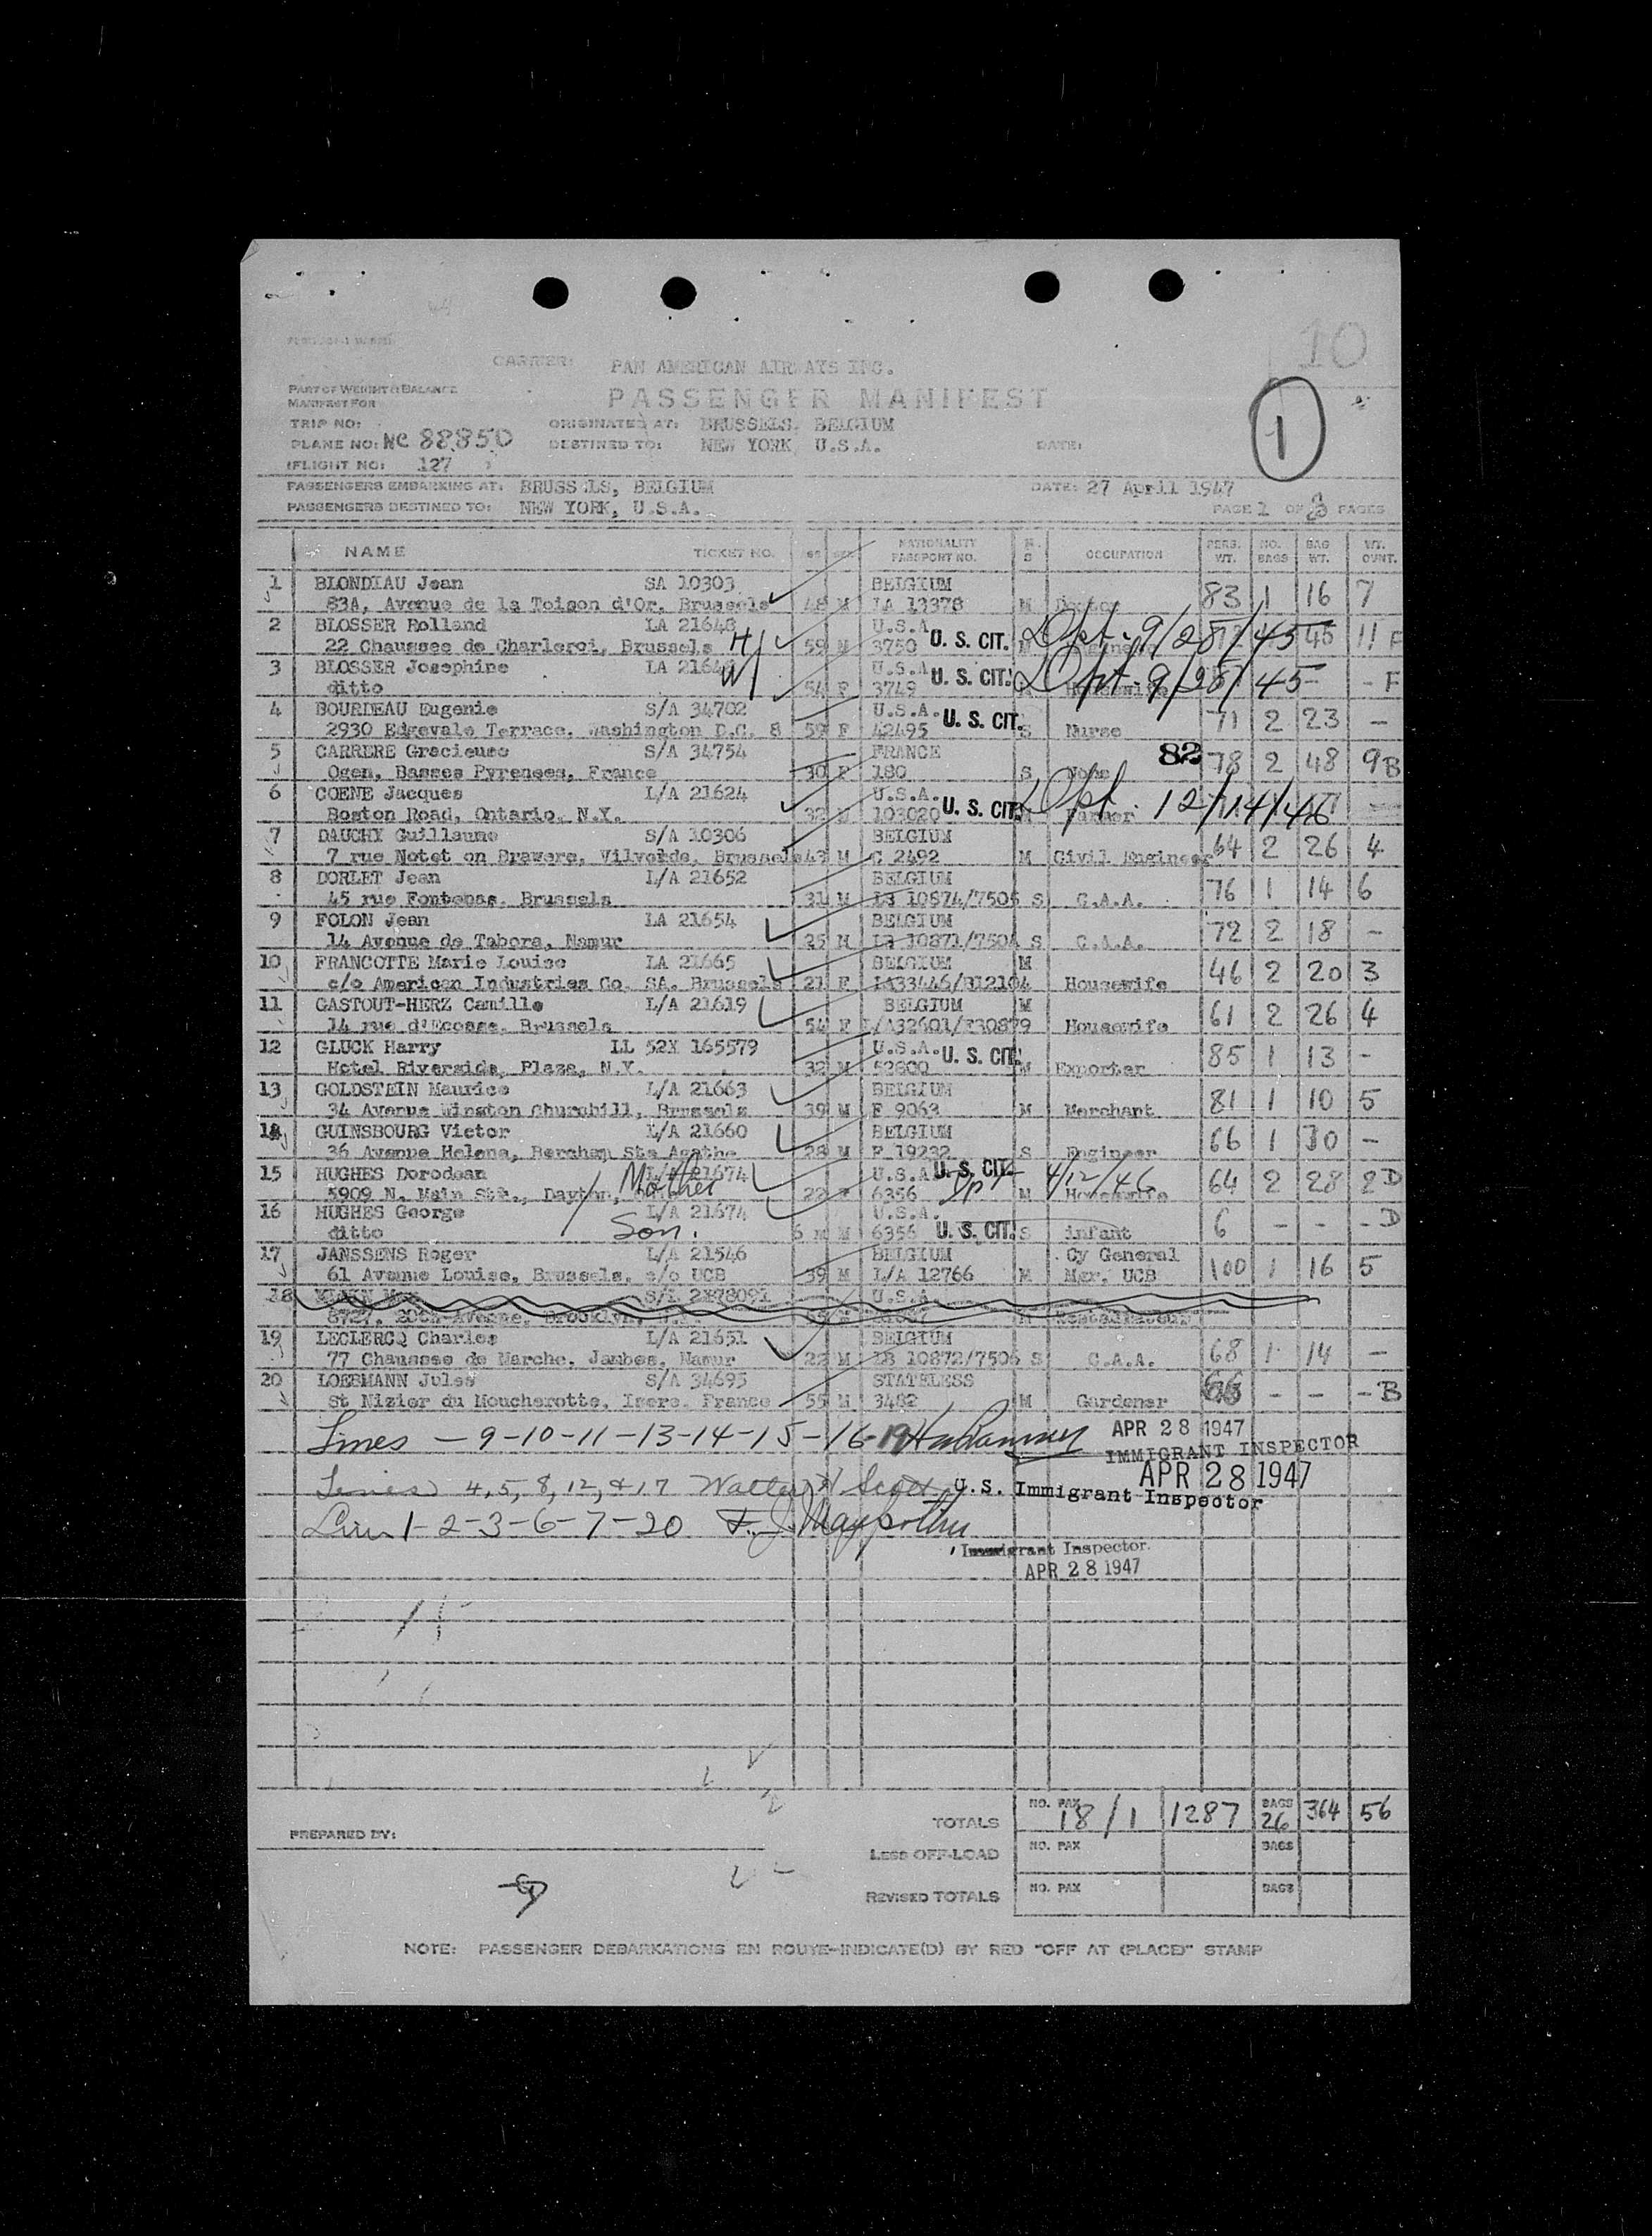 10
CARRIER: PAN AMERICAN AIRWAYS INC.
PART OF WEIGHT & BALANCE
MANIFEST FOR
PASSENGER MANIFEST
1
TRIP NO: ORIGINATED AT: BRUSSELS, BELGIUM
PLANE NO: NC 88850 DESTINED TO: NEW YORK, U.S.A. DATE:
FLIGHT NO: 127
PASSENGERS EMBARKING AT: BRUSSELS, BELGIUM DATE: 27 April 1947
PASSENGERS DESTINED TO: NEW YORK, U.S.A. PAGE 1 OF 3 PAGES
NAME TICKET NO. SEX NATIONALITY PASSPORT NO. M. S OCCUPATION PERS. WT. NO. BAGS BAG WT. WT. OVNT.
1 BLONDIAU Jean SA 10303 BELGIUM
83A, Avenue de la Toison d'Or, Brussels 48 M IA 13378 M 83 1 16 7
2 BLOSSER Rolland LA 21648 U.S.A.
22 Chaussee de Charleroi, Brussels H/ 59 M 3750 U. S. CIT. Dpt. 9/28/45 45 11 F
3 BLOSSER Josephine LA 21649 W/ U.S.A.
ditto 54 F 3749 U. S. CIT. Dpt. 9/28/45 Housewife - - F
4 BOURDEAU Eugenie S/A 34702 U.S.A.
2930 Edgevale Terrace, Washington D.C. 8 59 F 42495 U. S. CIT. S Nurse 71 2 23 -
5 CARRERE Gracieuse S/A 34754 FRANCE 82
Ogen, Basses Pyrenees, France 30 F 180 S None 78 2 48 9 B
6 COENE Jacques L/A 21624 U.S.A.
Boston Road, Ontario, N.Y. 32 M 103020 U. S. CIT. Farmer Dpt. 12/14/46
7 DAUCHY Guillaume S/A 10306 BELGIUM
7 rue Notet on Brawers, Vilvorde, Brussels 43 M C 2492 M Civil Engineer 64 2 26 4
8 DORLET Jean L/A 21652 BELGIUM
45 rue Fontenas, Brussels 31 M LB 10874/7505 S C.A.A. 76 1 14 6
9 FOLON Jean LA 21654 BELGIUM
14 Avenue de Tabora, Namur 25 M LB 10871/7504 S C.A.A. 72 2 18 -
10 FRANCOTTE Marie Louise LA 21665 BELGIUM M
c/o American Industries Co. SA. Brussels 21 F LA33446/B12104 Housewife 46 2 20 3
11 GASTOUT-HERZ Camille L/A 21619 BELGIUM W
14 rue d'Ecosse, Brussels 54 F L/A32601/K30879 Housewife 61 2 26 4
12 GLUCK Harry LL 52X 165579 U.S.A.
Hotel Riverside, Plaza, N.Y. 32 M 52800 U. S. CIT. M Exporter 85 1 13 -
13 GOLDSTEIN Maurice L/A 21663 BELGIUM
34 Avenue Winston Churchill, Brussels 39 M F 9063 M Merchant 81 1 10 5
14 GUINSBOURG Victor L/A 21660 BELGIUM
36 Avenue Helene, Berchem Ste Agathe 28 M F 19232 S Engineer 66 1 30 -
15 HUGHES Dorodean L/A 21674 U.S.A. U. S. CIT.
5909 N. Main Str., Dayton, Mother 22 F 6356 Dpt 4/12/46 M Housewife 64 2 28 2 D
16 HUGHES George L/A 21674 U.S.A.
ditto Son. 6 m M 6356 U. S. CIT. S infant 6 - - - D
17 JANSSENS Roger L/A 21546 BELGIUM Cy General
61 Avenue Louise, Brussels, c/o UCB 39 M L/A 12766 M Mgr. UCB 100 1 16 5
18 S/A 2X78091 U.S.A.
8727, 20th Avenue, Brooklyn, N.Y.
19 LECLERCQ Charles L/A 21651 BELGIUM
77 Chaussee de Marche, Jambes, Namur 22 M LB 10872/7506 S C.A.A. 68 1 14 -
20 LOEBMANN Jules S/A 34695 STATELESS
St Nizier du Moucherotte, Isere, France 55 M 3482 M Gardener 66 - - - B
Lines - 9-10-11-13-14-15-16-19 APR 28 1947
IMMIGRANT INSPECTOR
Lines 4,5,8,12,&17 Walter H Scott U.S. Immigrant Inspector APR 28 1947
Line 1-2-3-6-7-20
Immigrant Inspector.
APR 28 1947
TOTALS NO. PAX 18/1 1287 BAGS 26 364 56
PREPARED BY:
LESS OFF-LOAD NO. PAX BAGS
REVISED TOTALS NO. PAX BAGS
NOTE: PASSENGER DEBARKATIONS EN ROUTE-INDICATE(D) BY RED "OFF AT (PLACE)" STAMP